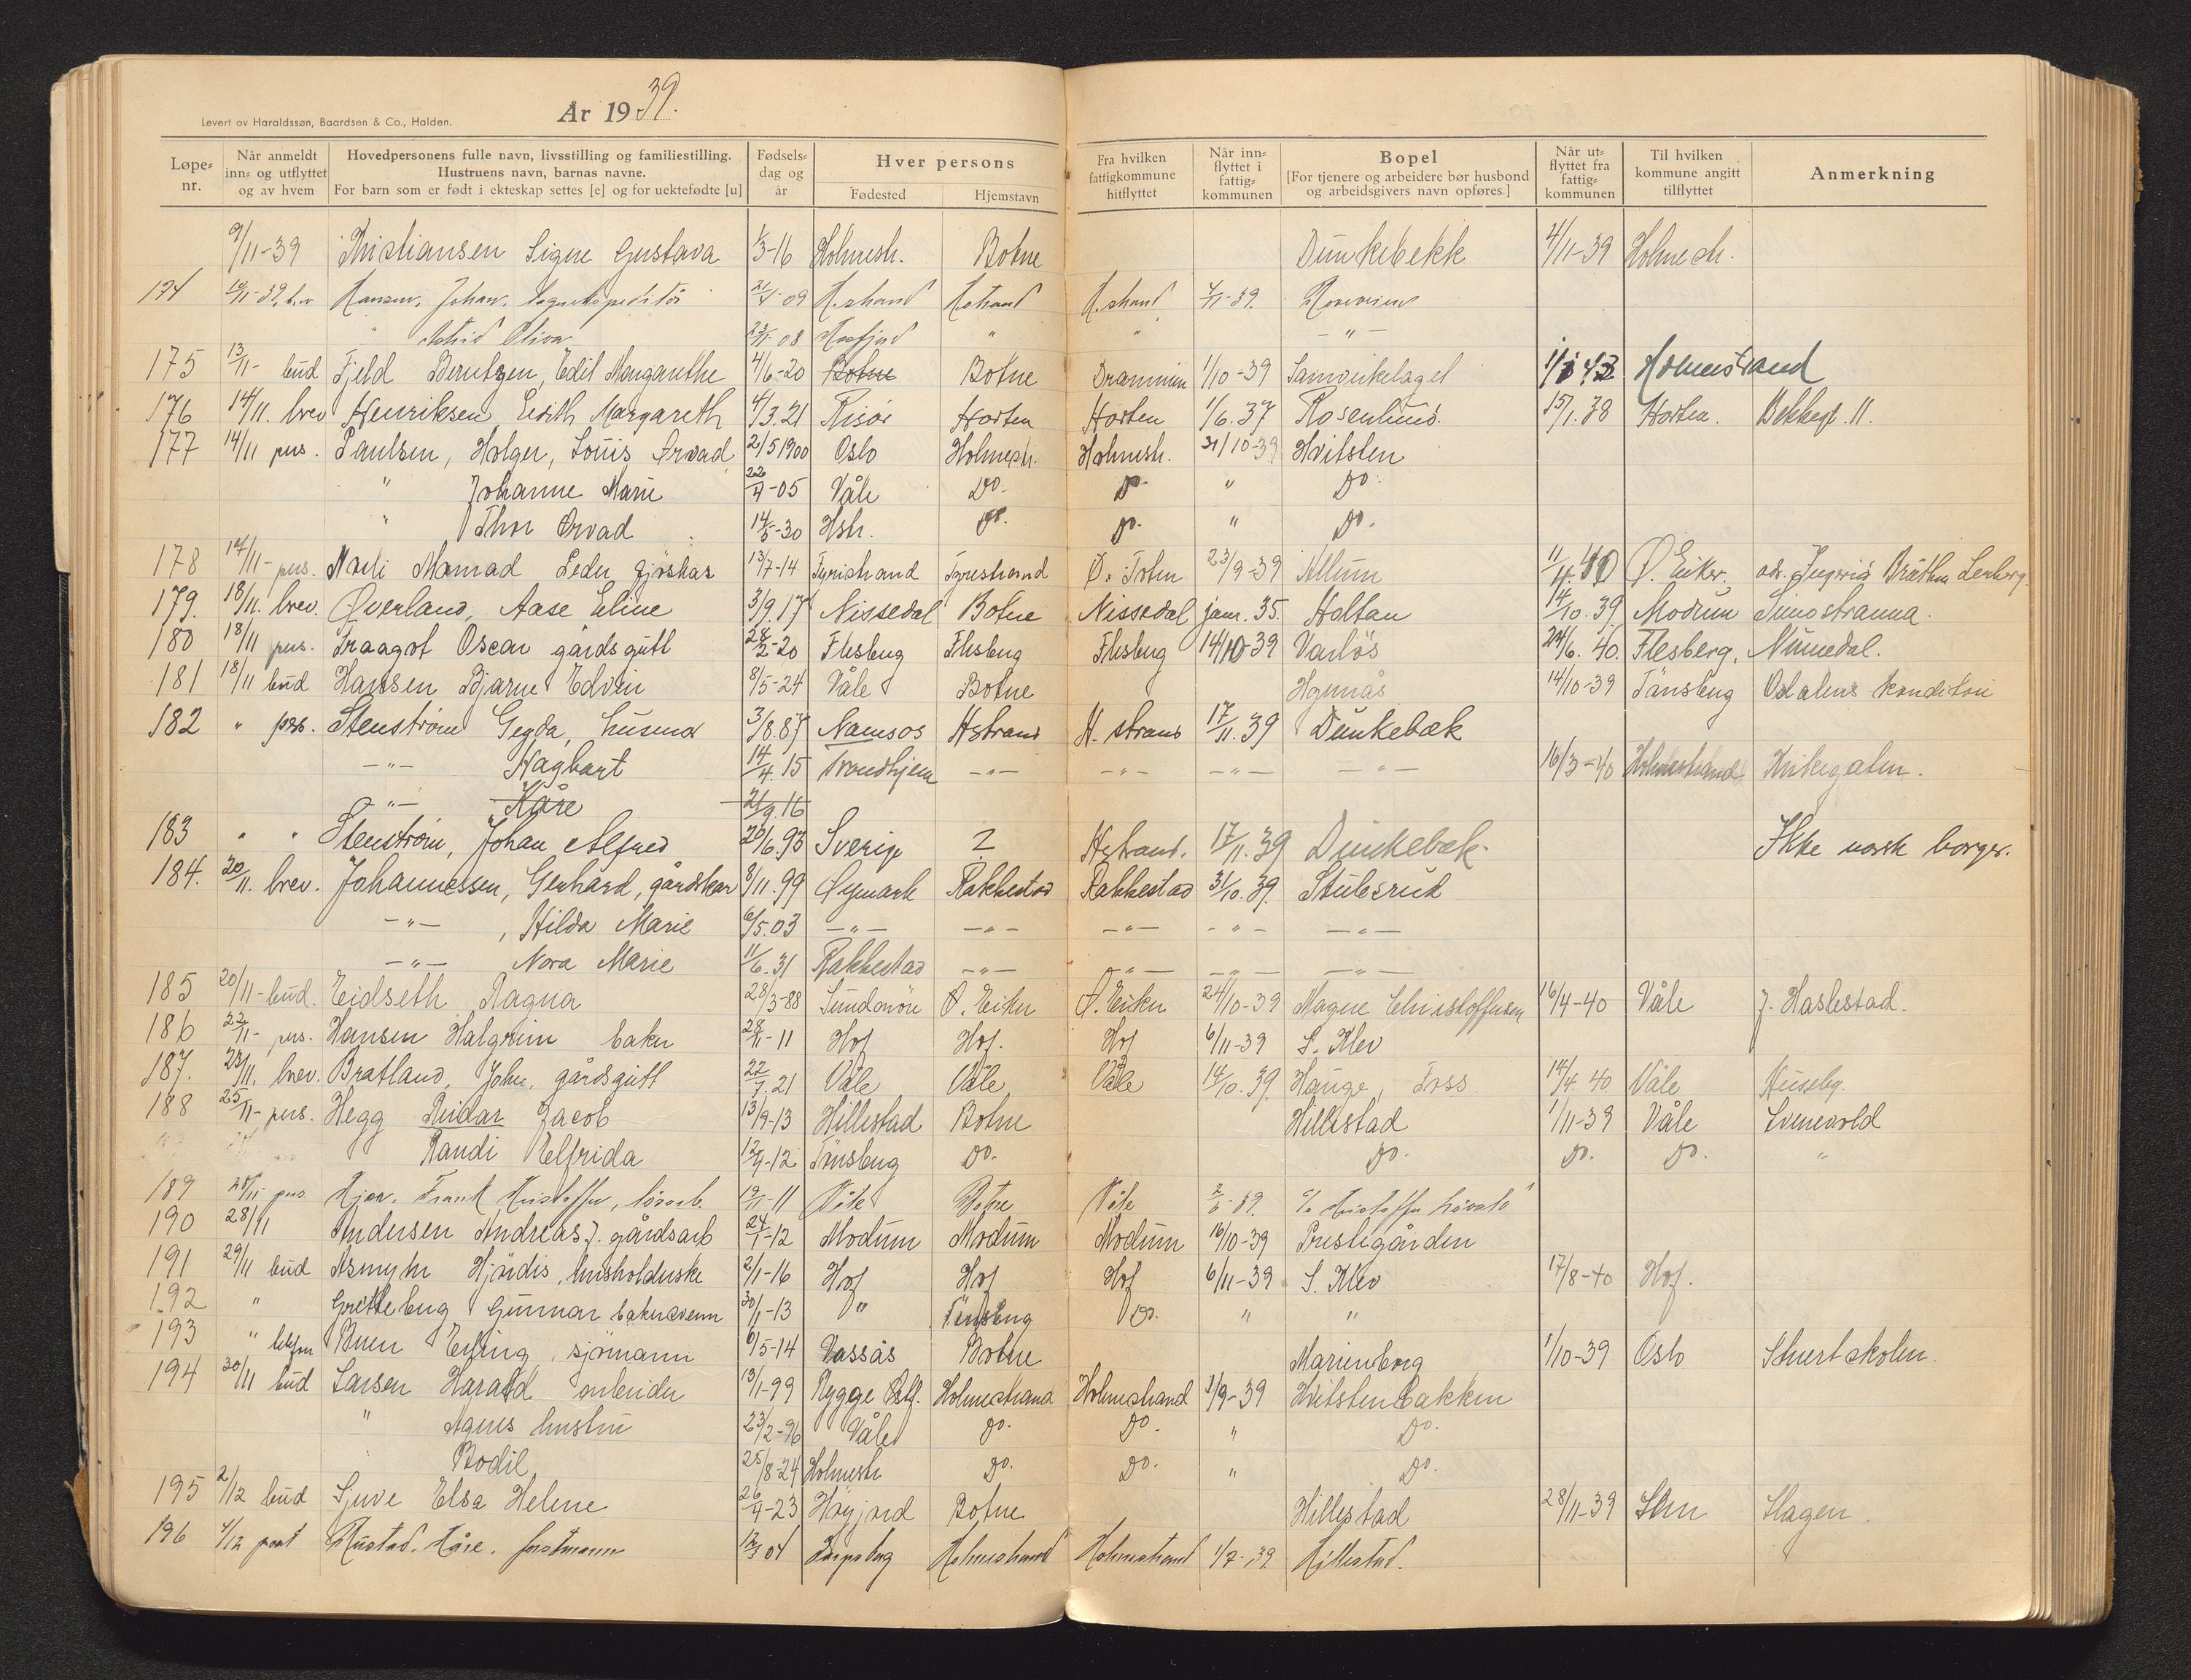 Levert av Haraldssøn, Baardsen & Co., Halden.
År 1939.
Løpe-nr. | Når anmeldt inn- og utflyttet og av hvem | Hovedpersonens fulle navn, livsstilling og familiestilling. Hustruens navn, barnas navne. For barn som er født i ekteskap settes [e] og for uektefødte [u] | Fødsels-dag og år | Hver persons Fødested | Hjemstavn | Fra hvilken fattigkommune hitflyttet | Når inn-flyttet i fattig-kommunen | Bopel [For tjenere og arbeidere bør husbond og arbeidsgivers navn opføres.] | Når ut-flyttet fra fattig-kommunen | Til hvilken kommune angitt tilflyttet | Anmerkning
9/11-39 Kristiansen Signe Gustava 1/3-16 Holmestr. Botne Dunkebekk 4/11-39 Holmestr.
174 Hansen, Johan, H.strand H.strand H.strand -39.
" Olivia 08 " " — " —
175 13/11- bud Fjeld Berntzen, Edit Margarethe 4/6-20 Botne Botne Drammen 1/10-39 Samvirkelaget Holmestrand
176 14/11. brev Henriksen Edith Margareth 4/3.21 Risör Horten Horten 1/6.37 Rosenlund. 15/1.38 Horten. Bekkegt. 11.
177 14/11 pers. Paulsen, Holger, Louis Arvad 2/5 1900 Oslo Holmestr. Holmestr. 31/10-39 Hvitsten
" Johanne Marie 22/4-05 Våle Do. Do. " Do.
" Thor Orvad 14/5-30 Hstr. Do. Do. " Do.
178 14/11- pers. Marli Mamad Peder 13/7-14 Tyristrand Tyristrand 23/9-39 Allum 11/4.40 Ø. Eiker. adr. Bråthen Lerberg.
179. 18/11. brev. Øverland, Aase Eline 3/9.17 Nissedal Botne Nissedal janr. 35. Holtan 14/10.39 Modum Simostranna.
180 18/11 pers. Traagot Oscar gårdsgutt 28/2-20 Flesberg Flesberg Flesberg 14/10-39 Varlös 24/6. 40. Flesberg, Numedal.
181 18/11 bud Hansen Bjarne Edvin 8/5-24 Våle Botne 14/10-39 Tönsberg konditori
182 " pers. Stenström Gegda, husmor 3/8.87 Namsos Hstrand H. strand 17/11.39 Dunkebæk
— " — Hagbart 14/4.15 Trondhjem — " — — " — — " — — " — 16/3-40 Holmestrand Kirkegaten.
— " — Kåre 21/9.16
183 " " Stenström, Johan Alfred 20/6.93 Sverige ? Hstrand. 17/11.39 Dunkebæk. Ikke norsk borger.
184. 20/11. brev. Johannessen, Gerhard, gårdskar 8/11.99 Øymark Rakkestad Rakkestad 31/10.39. Stulesrud
— " —, Hilda Marie 6/5.03 — " — — " — — " — — " — — " —
— " — Nora Marie 11/6.31 Rakkestad — " — — " — — " — — " —
185 20/11-bud. Eidseth Ragna 28/3-88 Sundmöre Ö. Eiker Ö. Eiker 24/10-39 Magne Christoffersen 16/4-40 Våle J. Haslestad.
186 22/11- pers. Hansen Halgrim baker 28/11-11 Hof Hof. Hof 6/11-39 S. Klev
187. 23/11. brev. Bratland, John, gårdsgutt 22/7.21 Våle Våle Våle 14/10.39. Hauge, Foss 14/4.40 Våle Huseby.
188 25/11- pers. Hegg Reidar Jacob 13/9-13 Hillestad Botne Hillestad 1/11-39 Våle Svinevold
Randi Elfrida -12 Tönsberg Do. Do. Do. Do. "
189 28/11 pers Frank -11 Våle Botne Våle -39.
190 28/11 Andersen Andreas J. gårdsarb 24/1-12 Modum Modum Modum 16/10-39 Prestegården
191 29/11 bud Asmyhr Hjördis, husholderske 2/1-16 Hof Hof Hof 6/11-39 S. Klev 17/8-40 Hof.
192 " Gretteberg Gunnar bakersvenn 30/1-13 " Tönsberg Do. " "
193 " Buen Erling, sjömann 6/5-14 Vassås Botne Marienborg 1/10-39 Oslo Stuertskolen.
194 30/11 bud Larsen Harald arbeider 13/1-99 Rygge Østf. Holmestrand Holmestrand 1/9-39 Hvitstenbakken
" Agnes hustru 23/2-96 Våle Do. Do. " Do.
Bodil 25/8-24 Holmestr Do. Do. " Do.
195 2/12 bud Sjuve Elsa Helene 26/4-23 Höyjord Botne Hillestad 28/11-39 Sem Slagen.
196 4/12 post Rustad, Kåre, forstmann 04 Sarpsborg Holmestrand Holmestrand 1/7-39 Hillestad.